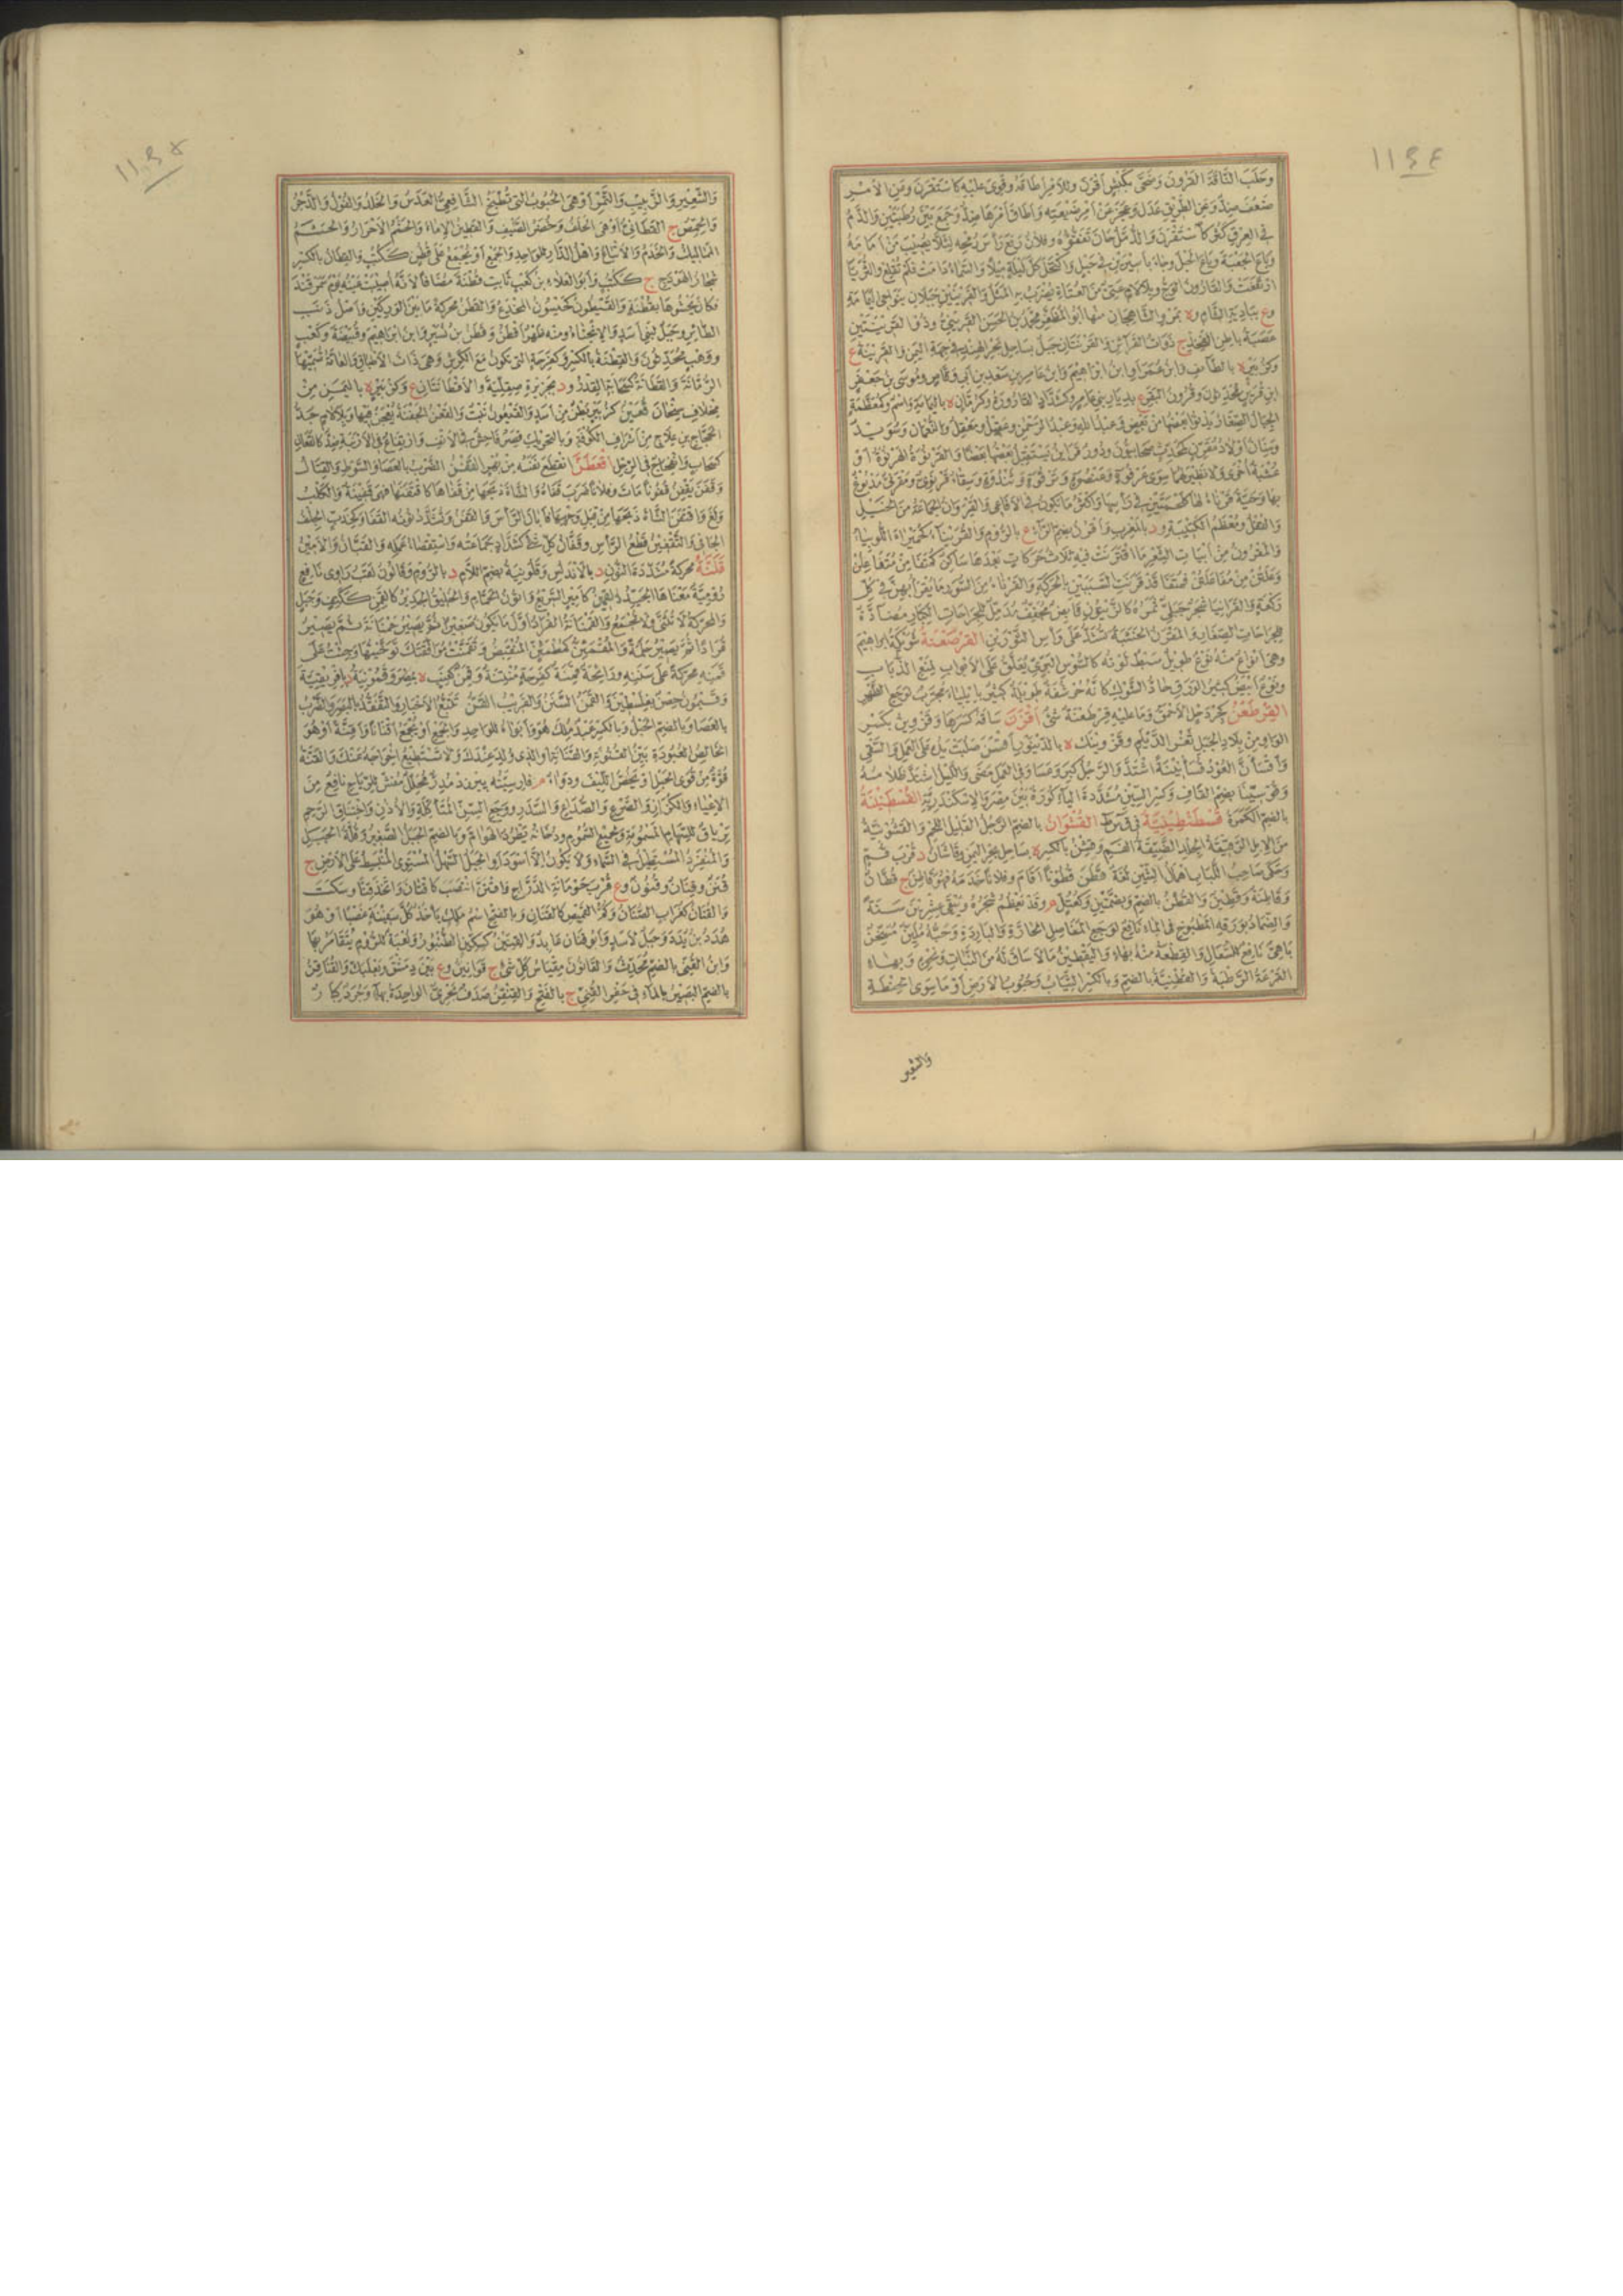 ١١٣٤
وحلب الناقة القرون وضحى بكبش أقرن وللأمر أطاقه وقوي عليه كاستقرن وعن الأمر
ضعف ضد وعن الطريق عدل وعجز عن أمر ضيعته وأطاق أمرها ضد وجمع بين رطبتين والدم
في العرق كثر كاستقرن والدمل حان تفقؤه وفلان رفع رأس رمحه لئلا يصيب من أمامه
وباع الجعبة وباع الحبل وجاء بأسيرين في حبل واكتحل كل ليلة ميلا والسماء دامت فلم تقلع والثريا
ارتفعت والقارون الوج وبلا لام عتي من العتاة يضرب به المثل والقريتين جبلان بنواحي اليمامة
وع ببادية الشام وة بمرو الشاهجان منها أبو المظفر محمد بن الحسن القرينيني وذو القرينتين
عصبة باطن الفخذ ج ذوات القرائن والقرنتان جبل بساحل بحر الهند في جهة اليمن والقرينة ع
وكزبير ة بالطائف وابن عمر أو ابن إبراهيم وابن عامر بن سعد بن أبي وقاص وموسى بن جعفر
ابن قرين محدثون وقرون البقر ع بديار بني عامر وكشداد القارورة وكرمان ة باليمامة واسم وكمعظمة
الجبال الصغار يدنو بعضها من بعض وعبد الله وعبد الرحمن وعقيل ومعقل والنعمان وسويد
وسنان أولاد مقرن كمحدث صحابيون ودور قرائن يستقبل بعضها بعضا والقرنوة الهرنوة أو
عشبة أخرى ولا نظير لهما سوى عرقوة وعنصوة وترقوة وثندوة وسقاء قرنوي ومقرنى مدبوغ
بها وحية قرناء لها كلحمتين في رأسها وأكثر ما يكون في الأفاعي والقيروان الجماعة من الخيل
والقفل ومعظم الكتيبة ود بالمغرب وأقرن بضم الراء ع بالروم والقريناء كحميراء اللوبياء
والمقرون من أبيات الشعر ما اقترنت فيه ثلاث حركات بعدها ساكن كمتفا من متفاعلن
وعلتن من مفاعلتن فمتفا قد قرنت السببين بالحركة والقرناء من السور ما يقرأ بهن في كل
ركعة والقرانيا شجر جبلي ثمره كالزيتون قابض مجفف مدمل للجراحات الكبار مضادة
للجراحات الصغار والمقرن الخشبة تشد على رأس الثورين القرصعنة شويكة إبراهيم
وهي أنواع منه نوع طويل سبط لونه كالسوس البري يعلق على الأبواب لمنع الذباب
ونوع أبيض كثير الورق حاد الشوك كأنه حرشفة طويلة كثير بإيلياء مجرب لوجع الظهر
القرطعن كجردحل الأحمق وما عليه قرطعنة شيء أقزن ساقه كسرها وقزوين بكسر
الواو من بلاد الجبل ثغر الديلم وقزوينك ة بالدينور أقسن صلبت يده على العمل والسقي
واقسأن العود قسأنينة اشتد والرجل كبر وعسا وفي العمل مضى والليل اشتد ظلامه
وقوسينا بضم القاف وكسر السين مشددة الياء كورة بين مصر والإسكندرية القسطبينة
بالضم الكمرة قسطنطينية في ق س ط القشوان بالضم الرجل القليل اللحم والقشونية
من الإبل الرقيقة الجلد الضيقة الفم وقشن بالكسر ة بساحل بحر اليمن وقاشان د قرب قم
وحكى صاحب اللباب إهمال الشين لغة قطن قطونا أقام وفلانا خدمه فهو قاطن ج قطان
وقاطنة وقطين والقطن بالضم وبضمتين وكعتل م وقد يعظم شجره ويبقى عشرين سنة
والضماد بورقه المطبوخ في الماء نافع لوجع المفاصل الحارة والباردة وحبه ملين مسخن
باهي نافع للسعال والقطعة منه بهاء واليقطين ما لا ساق له من النبات ونحوه وبهاء
القرعة الرطبة والقطنية بالضم وبالكسر الثياب وحبوب الأرض أو ما سوى الحنطة
والشعير
١١٣٥
والشعير والزبيب والتمر أو هي الحبوب التي تطبخ الشافعي العدس والخلر والفول والدجر
والحمص ج القطاني أو هي الخلف وخضر الصيف والقطين الإماء والحشم الأحرار والحشم
المماليك والخدم والأتباع وأهل الدار للواحد والجميع أو يجمع على قطن ككتب والقطان بالكسر
شجار الهودج ج ككتب وأبو العلاء بن كعب ثابت قطنة مضافا لأنه أصيبت عينه يوم سمرقند
فكان يحشوها بقطنة والقيطون كحيسون المخدع والقطن محركة ما بين الوركين وأصل ذنب
الطائر وجبل لبني أسد والانحناء ومنه ظهر أقطن وقطن بن نسير وابن إبراهيم وقبيصة وكعب
ووهب محدثون والقطنة بالكسر وكفرحة التي تكون مع الكرش وهي ذات الأطباق والعامة تسميها
الرمانة والقطانة كسحابة القدر ود بجزيرة صقلية والأقطانتان ع وكزبير ة باليمن من
مخلاف سنحان قعين كزبير بطن من أسد والقيعون نبت والقعن الجفنة يعجن فيها وبلا لام جد
الحجاج بن علاج من أشراف الكوفة وبالتحريك قصر فاحش في الأنف وارتفاع في الأرنبة ضد كالقعان
كسحاب وانفحاج في الرجل اقعطن انقطع نفسه من بهر القفن الضرب بالعصا والسوط والقتال
وقفن يقفن قفونا مات وفلانا ضرب قفاه والشاة ذبحها من قفاها كاقتفنها فهي قفينة والكلب
ولغ واقتفن الشاة ذبحها من قبل وجهها فأبان الرأس والقفن وتشدد نونه القفا وكخدب الجلف
الجافي والتقفين قطع الرأس وقفان كل شيء كشداد جماعته واستقصاء عمله والقبان والأمين
قلنة محركة مشددة النون د بالأندلس وقلونية بضم اللام د بالروم وقالون لقب راوي نافع
رومية معناها الجيد القمين كأمير السريع وأتون الحمام والخليق الجدير كالقمن ككتف وجبل
والمحركة لا تثنى ولا تجمع والقمنانة القراد أول ما يكون صغيرا ثم يصير حمنانة ثم يصير
قرادا ثم يصير حلمة والمقمئن كمطمئن المنقبض وتقمنت موافقتك توخيتها وجئت على
قمنه محركة على سننه ورائحة قمنة كفرحة منتنة وقمن كعنب ة بمصر وقمونية د بإفريقية
وقيمون حصن بفلسطين والقمن السنن والقريب القن تتبع الأخبار والتفقد بالبصر والضرب
بالعصا وبالضم الجبل وبالكسر عبد ملك هو وأبواه للواحد والجمع أو يجمع أقنانا وأقنة أو هو
الخالص العبودة بين القنونة والقنانة أو الذي ولد عندك ولا تستطيع إخراجه عنك والقنة
قوة من قوى الحبل أو يخص الليف ودواء م فارسيته بيرزد مدر محلل مفش للرياح نافع من
الإعياء والكزاز والصرع والصداع والسدر ووجع السن المتأكلة والأذن واختناق الرحم
ترياق للسهام المسمومة وجميع السموم ودخانه يطرد الهوام وبالضم الجبل الصغير وقلة الجبل
والمنفرد المستطيل في السماء ولا يكون إلا أسود أو الجبل السهل المستوي المنبسط على الأرض ج
قنن وقنان وقنون وع قرب حومانة الدراج واقتن انتصب كاقتان واتخذ قنا وسكت
والقنان كغراب الصنان وكم القميص كالقنان وبالفتح اسم ملك يأخذ كل سفينة غصبا أو هو
هدد بن بدد وجبل لأسد وأبو قنان عابد والقنين كسكين الطنبور ولعبة للروم يتقامر بها
وابن القني بالضم محدث والقانون مقياس كل شيء ج قوانين وع بين دمشق وبعلبك والقناقن
بالضم البصير بالماء في حفر القني ج بالفتح والقنقن صدف بحري الواحدة بهاء وجرذ كبار